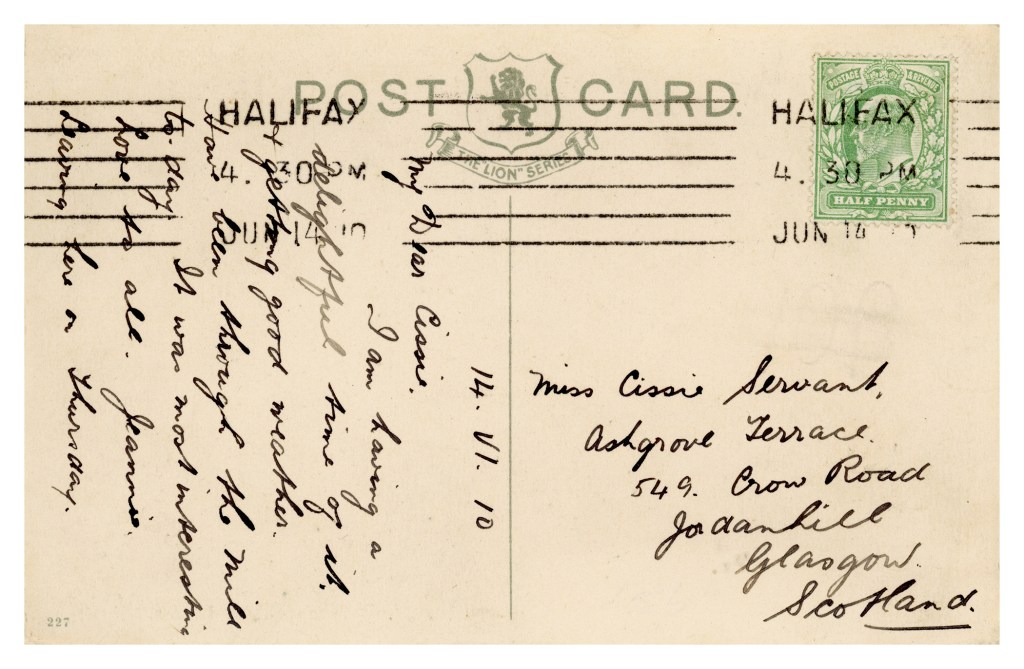 POST CARD.
"THE LION" SERIES
HALIFAX
4. 30 PM
JUN 14 10
HALIFAX
4. 30 PM
JUN 14
POSTAGE & REVENUE
HALF PENNY
14. VI. 10
My Dear Cissie.
I am having a
delightful time of it.
& getting good weather.
Have been through the Mill
to-day It was most interesting
Love to all. Jeannie.
Leaving here on Thursday.
Miss Cissie Servant,
Ashgrove Terrace.
549. Crow Road
Jordanhill
Glasgow.
Scotland.
227